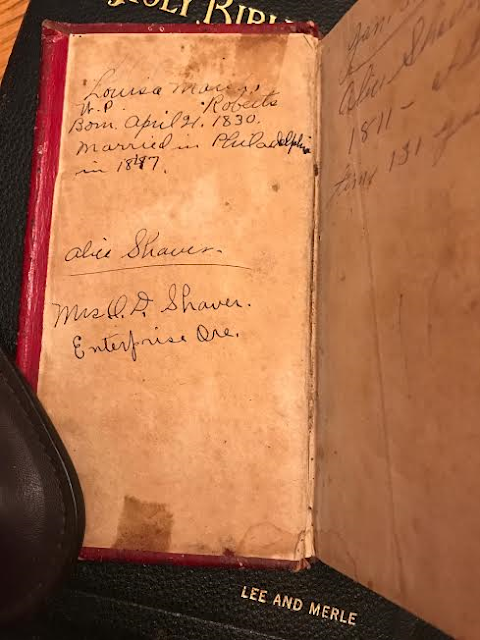 HOLY BIBLE
Louisa Mary
W.P. Roberts
Born April 21, 1830.
Married in Philadelphia
in 1847.
Alice Shaver.
Mrs O. D. Shaver.
Enterprise Ore.
Alice
1811 -
131
LEE AND MERLE